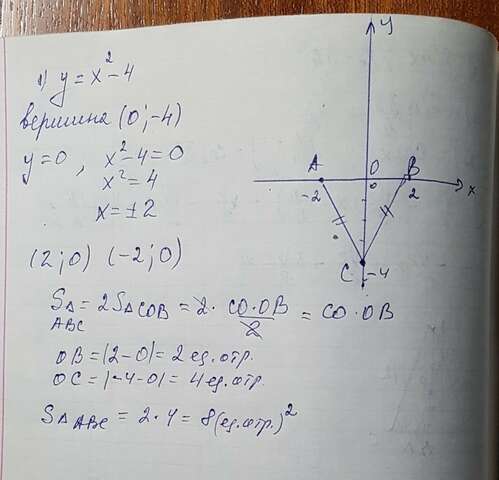 1) y = x² - 4
вершина (0; -4)
y = 0, x² - 4 = 0
x² = 4
x = ± 2
(2; 0) (-2; 0)
S△ABC = 2S△COB = 2 · CO · OB / 2 = CO · OB
OB = |2 - 0| = 2 ед. отр.
OC = |-4 - 0| = 4 ед. отр.
S△ABC = 2 · 4 = 8 (ед. отр.)²
y
A
O
B
-2
0
2
x
C
-4